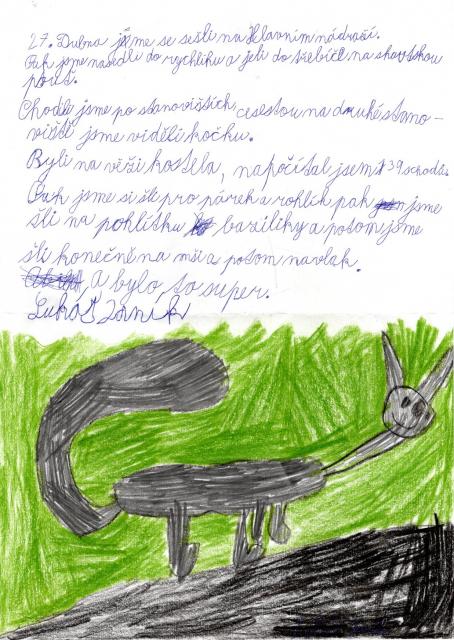 27. Dubna jsme se sešli na Hlavním nádraží.
Pak jsme nasedli do rychlíku a jeli do třebíče na skautskou
pouť.
Chodily jsme po stanovištích, cestou na druhé stano-
viště jsme viděli kočku.
Byli na věži kostela, napočítal jsem 139 schodů.
Pak jsme si šli pro párek a rohlík pak jsme
šli na pohlítku baziliky a potom jsme
šli konečně na mši a potom na vlak.
A bylo to super.
Lukáš